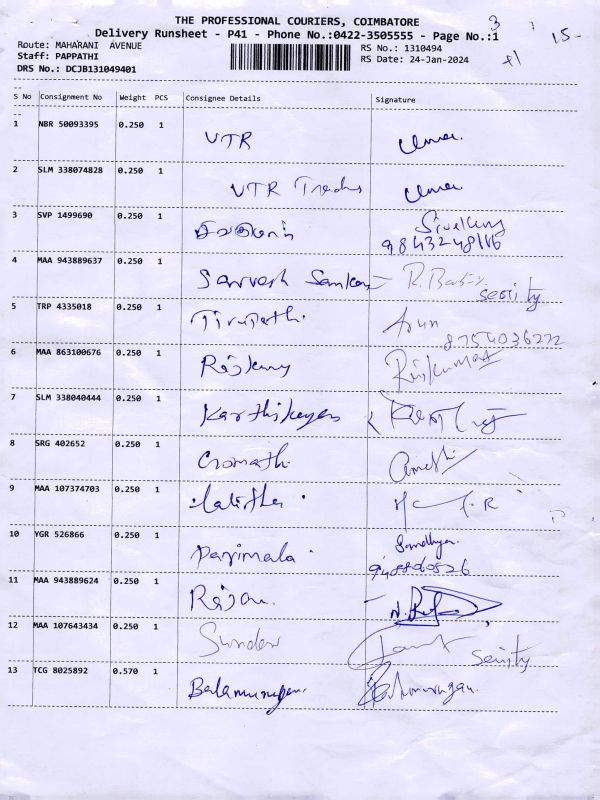 THE PROFESSIONAL COURIERS, COIMBATORE
3
Delivery Runsheet - P41 - Phone No.:0422-3505555 - Page No.:1
15-
Route: MAHARANI AVENUE
RS No.: 1310494
Staff: PAPPATHI
RS Date: 24-Jan-2024
DRS No.: DCJB131049401
S No Consignment No Weight PCS Consignee Details Signature
1 NBR 50093395 0.250 1 VTR
2 SLM 338074828 0.250 1 VTR Traders
3 SVP 1499690 0.250 1
9843248116
4 MAA 943889637 0.250 1 Sarvesh Sankar R.
5 TRP 4335018 0.250 1 Tirupathi Arun
8754036272
6 MAA 863100676 0.250 1 Rajkumar Rajkumar
7 SLM 338040444 0.250 1 Karthikeyan
8 SRG 402652 0.250 1 Gomathi
9 MAA 107374703 0.250 1 Lalitha
10 YGR 526866 0.250 1 Parimala Sandhya
11 MAA 943889624 0.250 1 Rajan
12 MAA 107643434 0.250 1 Sundar
13 TCG 8025892 0.570 1 Balamurugan Balamurugan